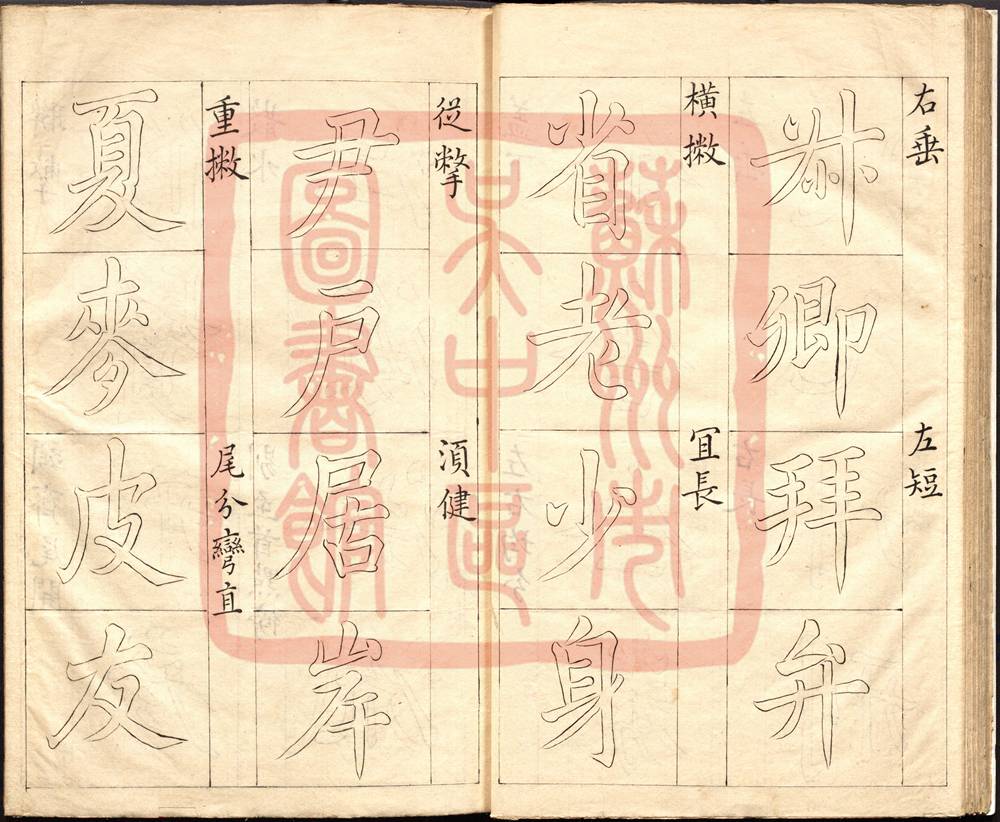 右垂　左短
卿拜弁
橫撇　冝長
省老少身
從撆　湏健
尹戸居岸
重撇　尾分彎直
夏麥皮友
蘇州市
吳中區
圖書館